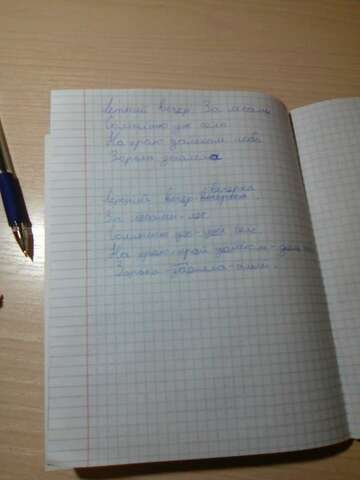 Летний вечер. За лесами
Солнышко уж село
На краю далёком неба
Зорька заалела
вечерка
Летний вечер-
За лесами-лес
Солнышко уж-уже село
На краю-край далёком-даль
Зорька-